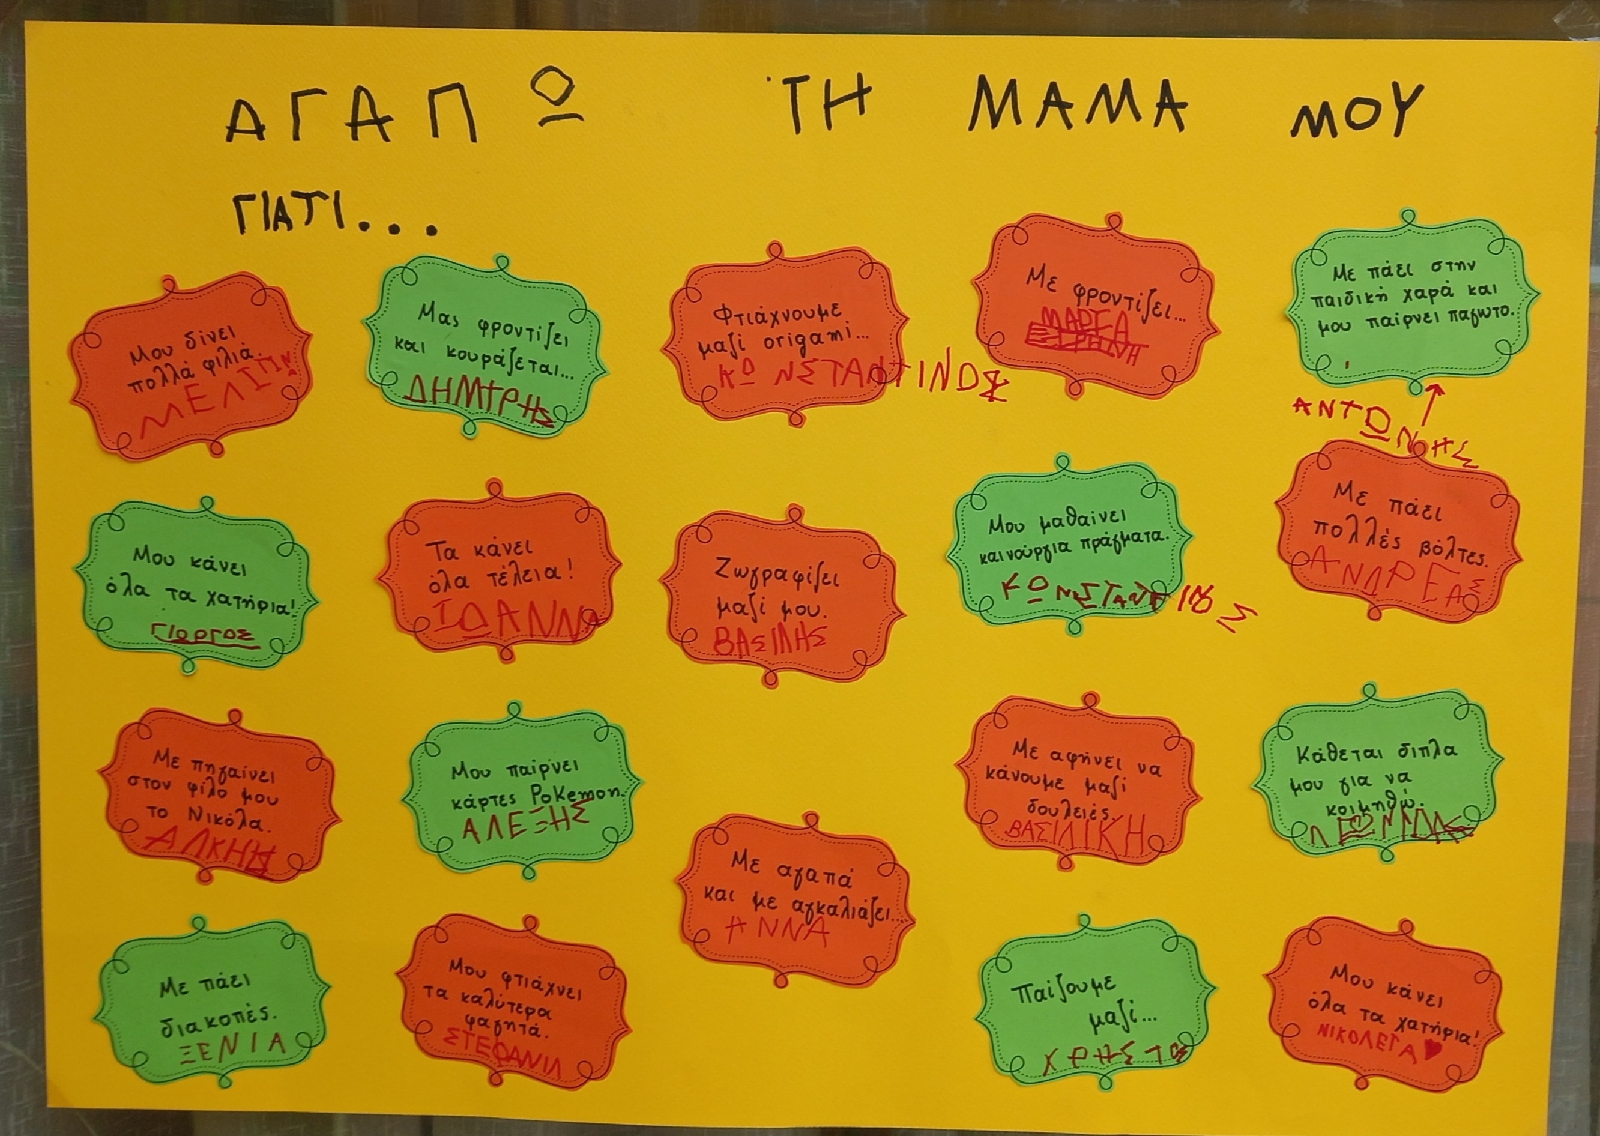 ΑΓΑΠΩ ΤΗ ΜΑΜΑ ΜΟΥ
ΓΙΑΤΙ...
Μου δίνει
πολλά φιλιά.
ΜΕΛΙΝΑ
Μας φροντίζει
και κουράζεται...
ΔΗΜΤΡΗΣ
Φτιάχνουμε
μαζί origami...
ΚΩΝΣΤΑΝΤΙΝΟΣ
Με φροντίζει...
ΜΑΡΓΑ
Με πάει στην
παιδική χαρά και
μου παίρνει παγωτο.
ΑΝΤΩΝΗΣ
Μου κάνει
όλα τα χατήρια!
ΓΙΟΡΓΟΣ
Τα κάνει
όλα τέλεια!
ΙΩΑΝΝΑ
Ζωγραφίζει
μαζί μου.
ΒΑΣΙΛΗΣ
Μου μαθαίνει
καινούργια πράγματα.
ΚΩΝΣΤΑΝΤΙΝΟΣ
Με πάει
πολλές βόλτες.
ΑΝΔΡΕΑΣ
Με πηγαίνει
στον φίλο μου
το Νικόλα.
ΑΛΚΗΣ
Μου παίρνει
κάρτες Pokemon.
ΑΛΕΞΗΣ
Με αγαπά
και με αγκαλιάζει...
ΑΝΝΑ
Με αφήνει να
κάνουμε μαζί
δουλειές.
ΒΑΣΙΛΙΚΗ
Κάθεται διπλα
μου για να
κοιμηθώ.
Με πάει
διακοπές.
ΞΕΝΙΑ
Μου φτιάχνει
τα καλύτερα
φαγητά.
ΣΤΕΦΑΝΙΑ
Παίζουμε
μαζί...
ΧΡΗΣΤΟΣ
Μου κάνει
όλα τα χατήρια!
ΝΙΚΟΛΕΤΑ